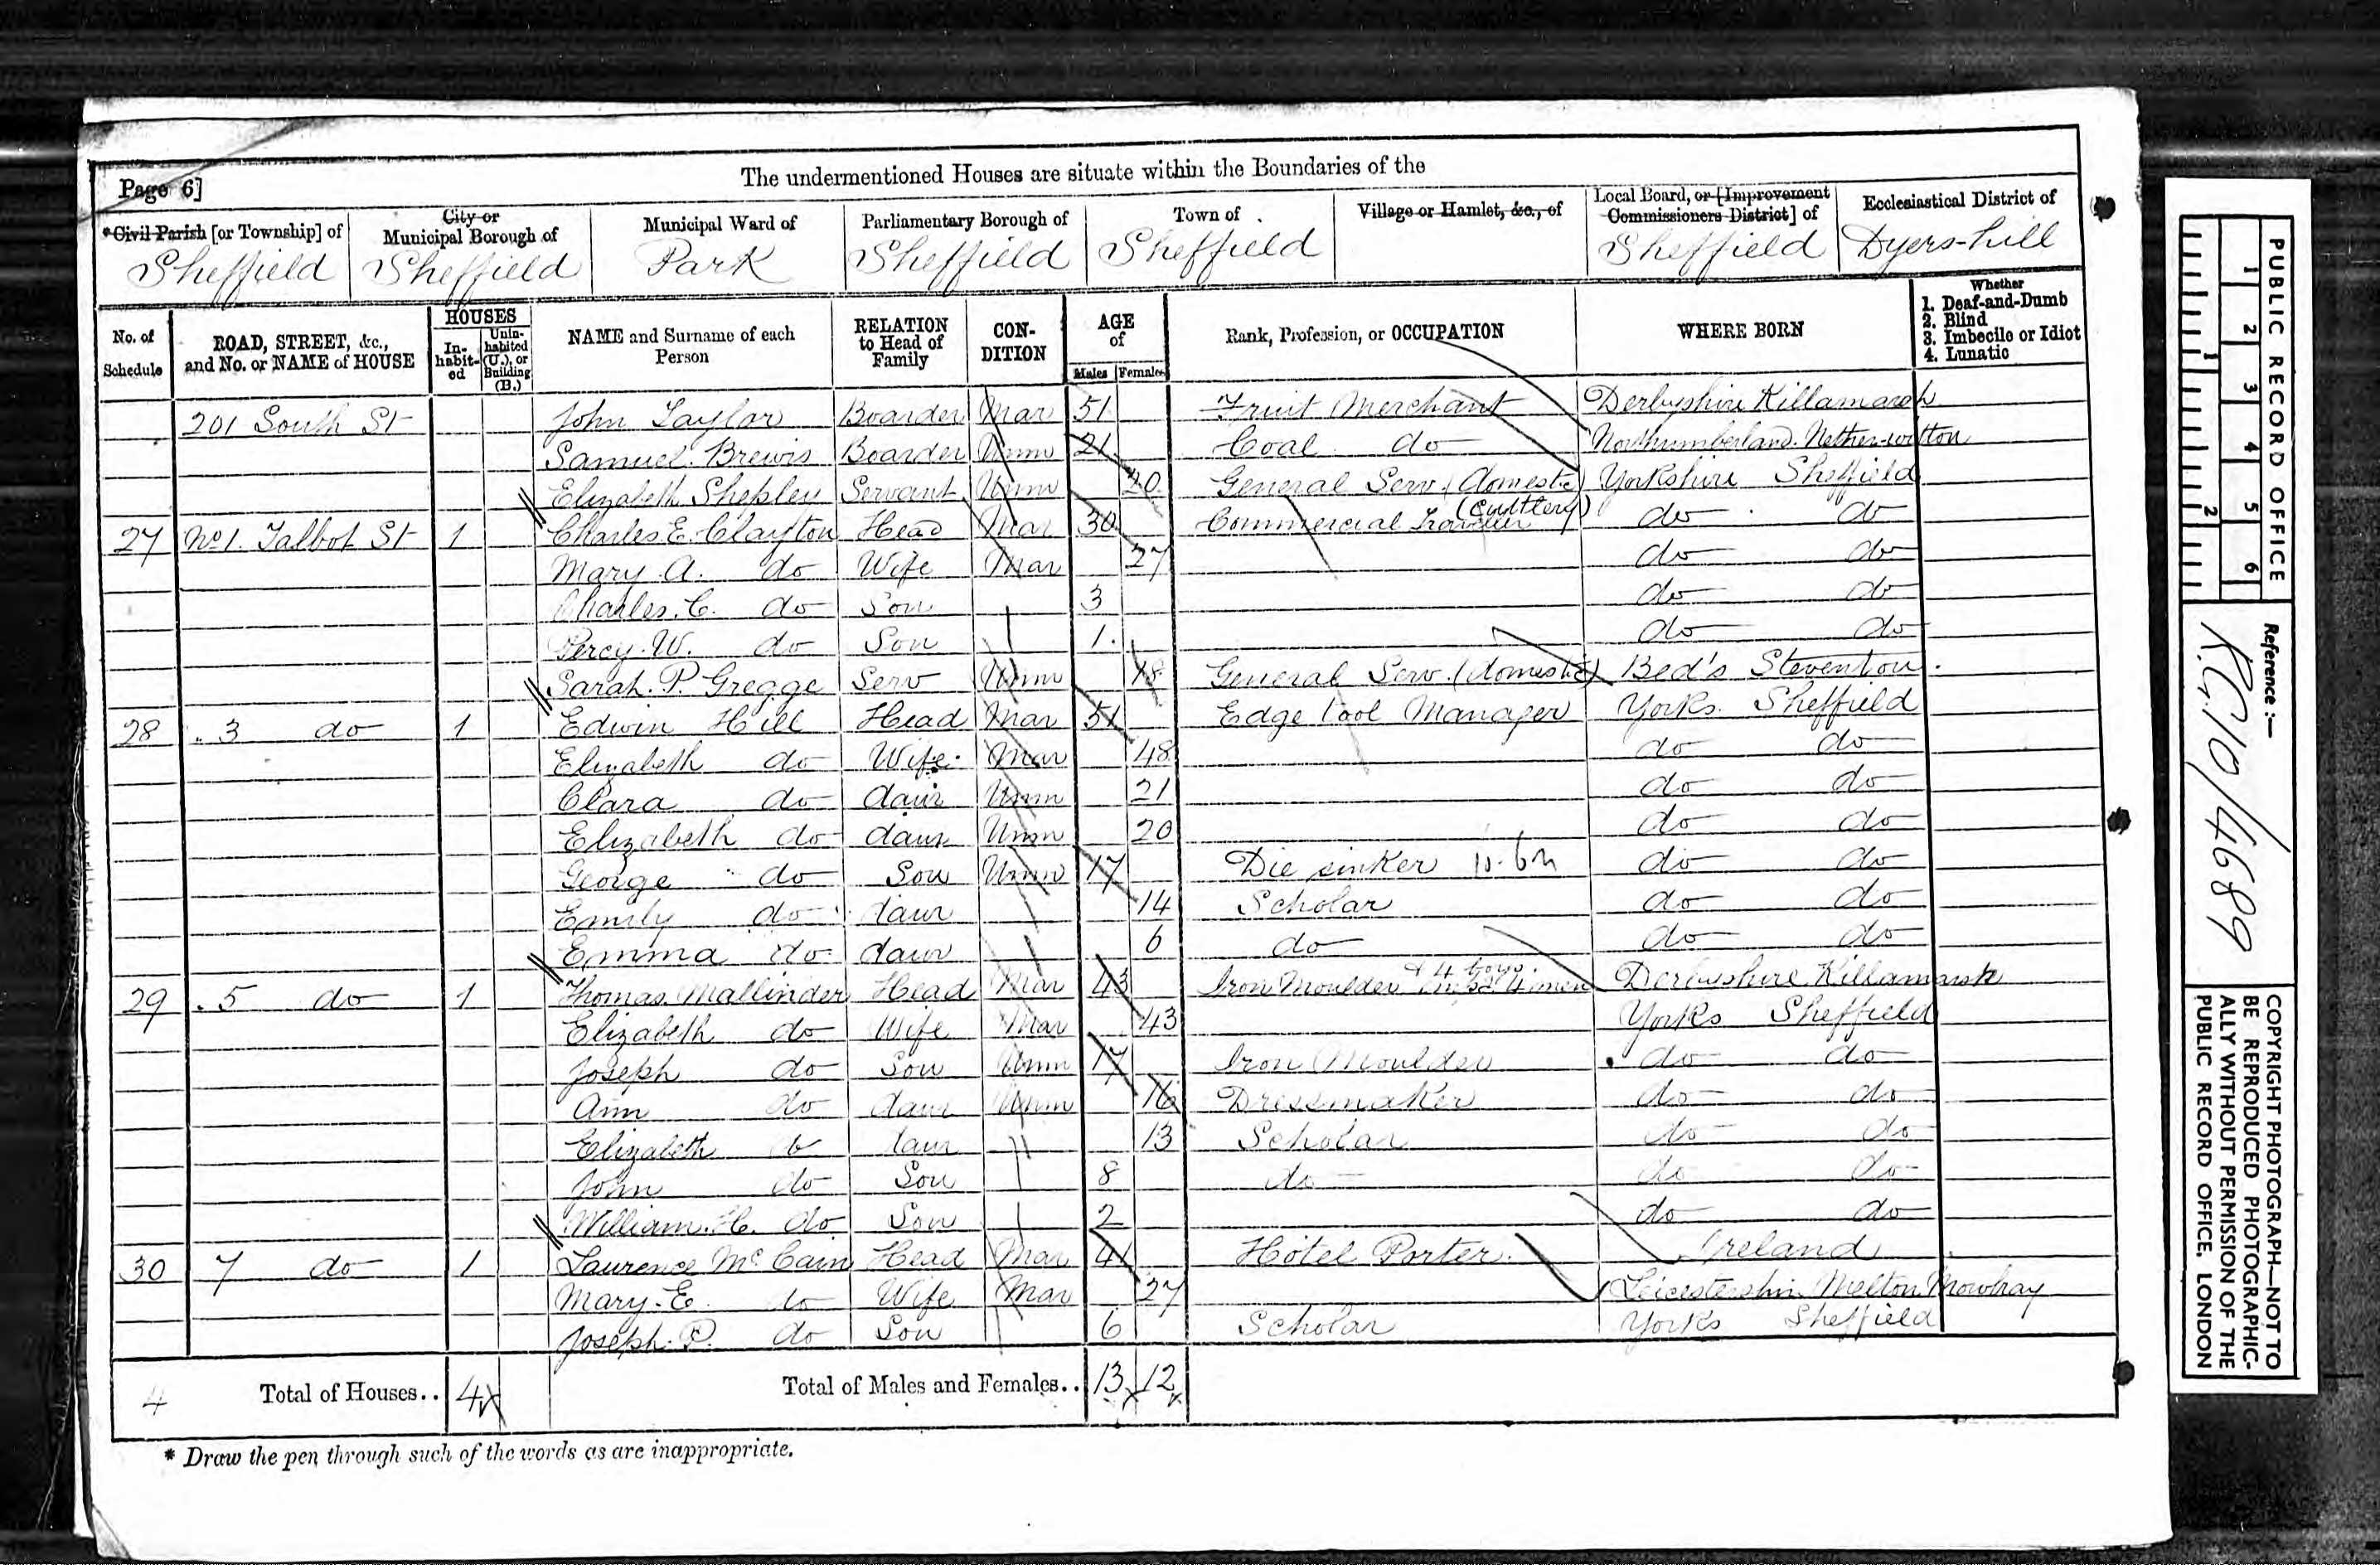 The undermentioned Houses are situate within the Boundaries of the
Page 6]
*Civil Parish [or Township] of
Sheffield
City or
Municipal Borough of
Sheffield
Municipal Ward of
Park
Parliamentary Borough of
Sheffield
Town of
Sheffield
Village or Hamlet, &c., of
Local Board, or [Improvement
Commissioners District] of
Sheffield
Ecclesiastical District of
Dyers-hill
No. of
Schedule
ROAD, STREET, &c.,
and No. or NAME of HOUSE
HOUSES
In-
habit-
ed
Unin-
habited
(U.), or
Building
(B.)
NAME and Surname of each
Person
RELATION
to Head of
Family
CON-
DITION
AGE
of
Males Females
Rank, Profession, or OCCUPATION
WHERE BORN
Whether
1. Deaf-and-Dumb
2. Blind
3. Imbecile or Idiot
4. Lunatic
201 South St John Taylor Boarder Mar 51 Fruit Merchant Derbyshire Killamarsh
Samuel Brewis Boarder Unm 21 Coal do Northumberland Nether-witton
Elizabeth Shepley Servant Unm 20 General Serv (domestic) Yorkshire Sheffield
27 No 1. Talbot St 1 Charles E. Clayton Head Mar 30 Commercial Traveller (Cuttlery) do do
Mary A. do Wife Mar 27 do do
Charles C. do Son 3 do do
Percy W. do Son 1 do do
Sarah P. Gregge Serv Unm 18 General Serv. (domestic) Bed's Steventon
28 3 do 1 Edwin Hill Head Mar 51 Edge tool Manager Yorks Sheffield
Elizabeth do Wife Mar 48 do do
Clara do daur Unm 21 do do
Elizabeth do daur Unm 20 do do
George do Son Unm 17 Die sinker do do
Emily do daur 14 Scholar do do
Emma do daur 6 do do do
29 5 do 1 Thomas Mallinder Head Mar 43 Iron Moulder 4 men & 4 boys Derbyshire Killamarsh
Elizabeth do Wife Mar 43 Yorks Sheffield
Joseph do Son Unm 17 Iron Moulder do do
Ann do daur Unm 16 Dressmaker do do
Elizabeth do daur 13 Scholar do do
John do Son 8 do do do
William H. do Son 2 do do
30 7 do 1 Laurence Mc Cain Head Mar 41 Hotel Porter Ireland
Mary E. do Wife Mar 27 Leicestershire Melton Mowbray
Joseph P. do Son 6 Scholar Yorks Sheffield
4 Total of Houses.. 4 Total of Males and Females.. 13 12
* Draw the pen through such of the words as are inappropriate.
PUBLIC RECORD OFFICE
1 2 3 4 5 6
1 2
Reference:—
R.G. 10/4689
COPYRIGHT PHOTOGRAPH—NOT TO
BE REPRODUCED PHOTOGRAPHIC-
ALLY WITHOUT PERMISSION OF THE
PUBLIC RECORD OFFICE, LONDON